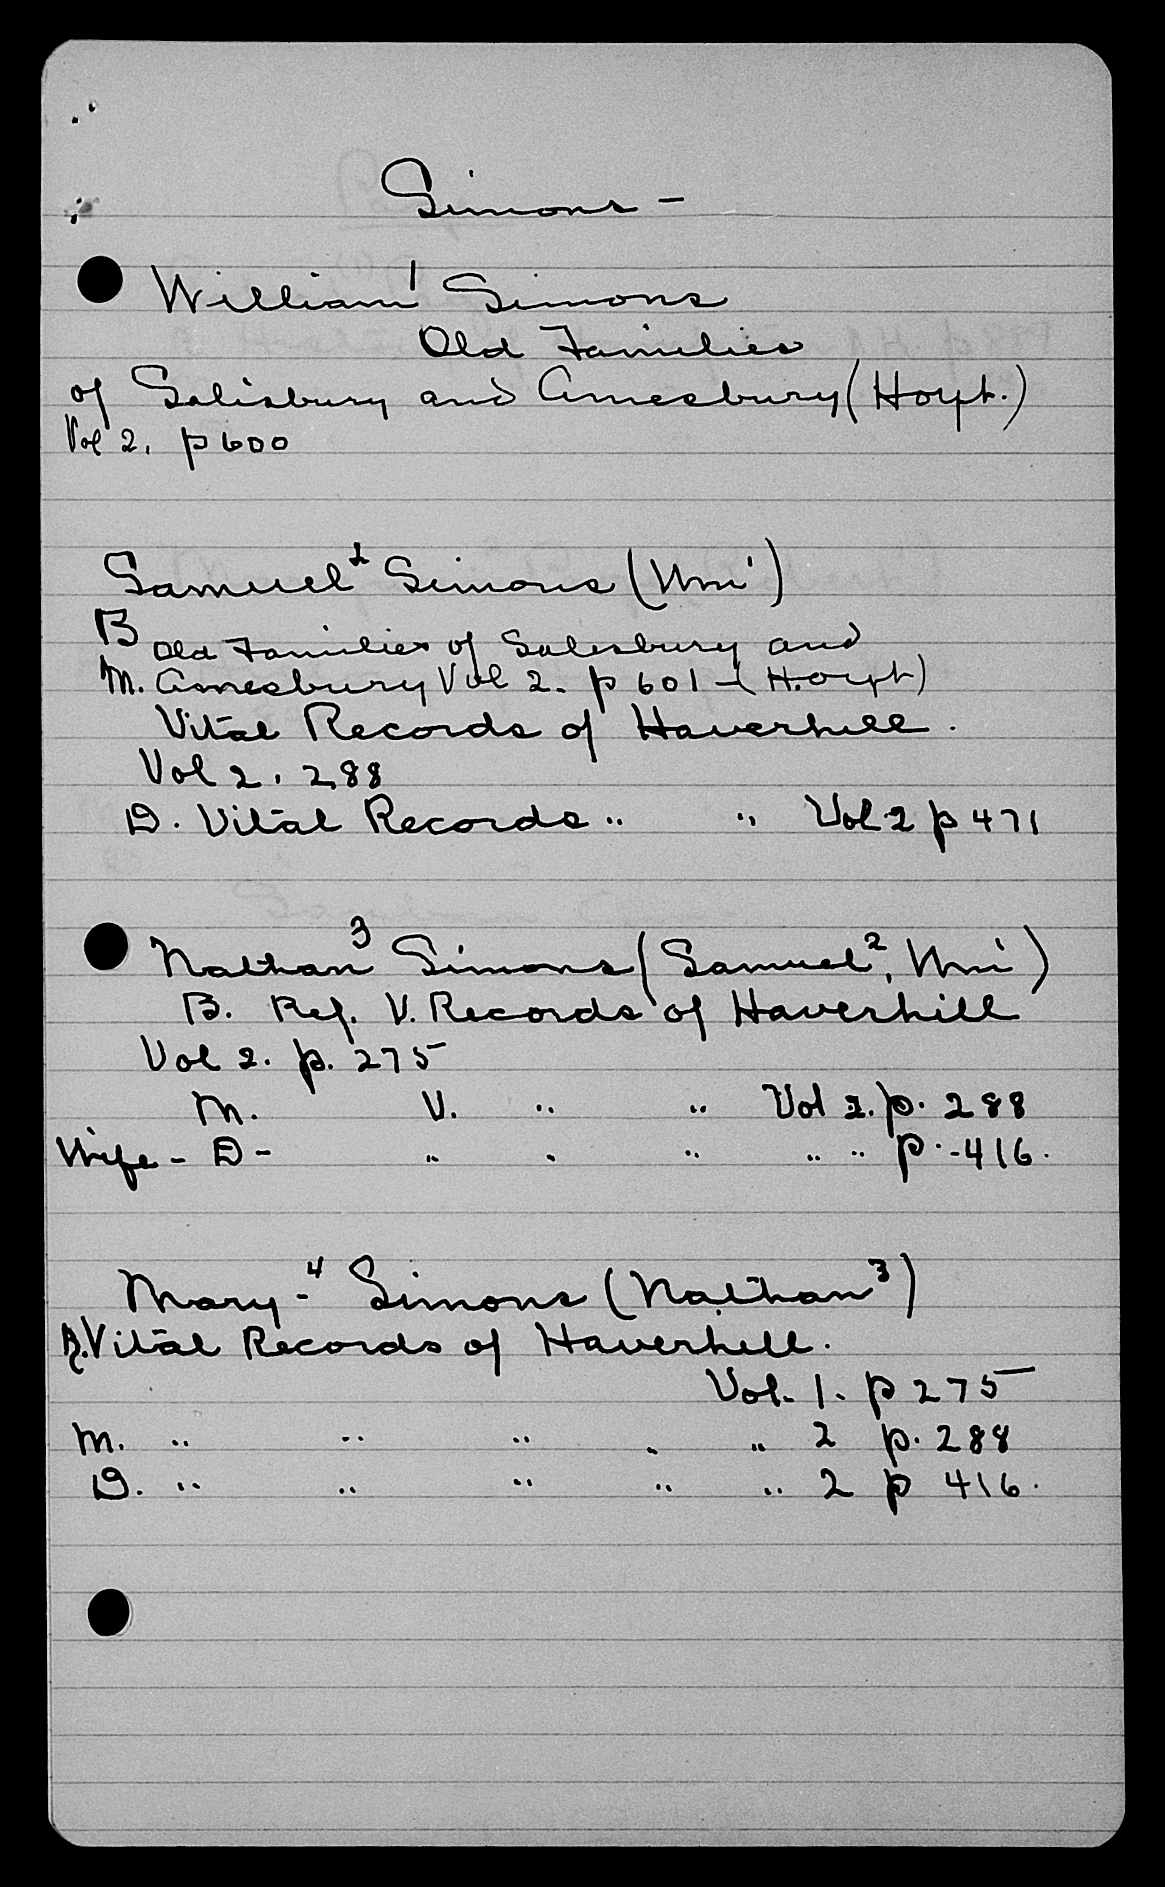 Simons -
William¹ Simons
Old Families
of Salisbury and Amesbury (Hoyt.)
Vol 2. p 600
Samuel² Simons (Wm¹)
B Old Families of Salisbury and
M. Amesbury Vol 2. p 601 - (Hoyt)
Vital Records of Haverhill.
Vol 2. 288
D. Vital Records " " Vol 2 p 471
Nathan³ Simons (Samuel², Wm¹)
B. Ref. V. Records of Haverhill
Vol 2. p. 275
M. V. " " Vol 2. p. 288
Wife - D - " " " " " p. - 416.
Mary - ⁴ Simons (Nathan³)
B. Vital Records of Haverhill.
Vol. 1. p 275
M. " " " " " 2 p. 288
D. " " " " " 2 p 416.